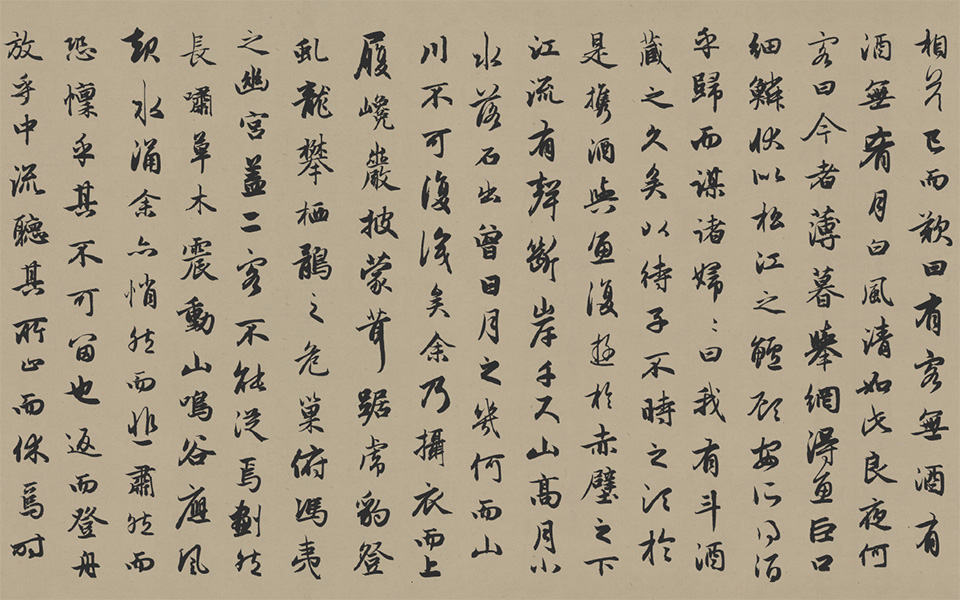 相答已而歎曰有客無酒有
酒無肴月白風清如此良夜何
客曰今者薄暮舉網得魚巨口
細鱗狀似松江之鱸顧安所得酒
乎歸而謀諸婦〻曰我有斗酒
藏之久矣以待子不時之須於
是攜酒與魚復遊於赤壁之下
江流有聲斷岸千尺山高月小
水落石出曾日月之幾何而山
川不可復識矣余乃攝衣而上
履巉巖披蒙茸踞虎豹登
虬龍攀栖鶻之危巢俯馮夷
之幽宮蓋二客不能從焉劃然
長嘯草木震動山鳴谷應風
起水涌余亦悄然而悲肅然而
恐懍乎其不可留也返而登舟
放乎中流聽其所止而休焉時